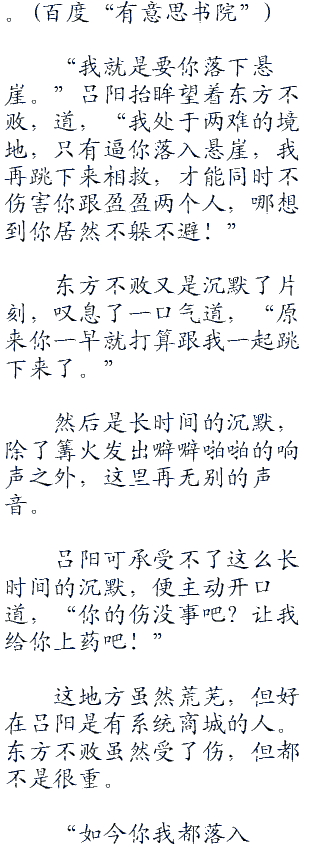 。(百度“有意思书院”)
“我就是要你落下悬
崖。”吕阳抬眸望着东方不
败，道，“我处于两难的境
地，只有逼你落入悬崖，我
再跳下来相救，才能同时不
伤害你跟盈盈两个人，哪想
到你居然不躲不避！”
东方不败又是沉默了片
刻，叹息了一口气道，“原
来你一早就打算跟我一起跳
下来了。”
然后是长时间的沉默，
除了篝火发出噼噼啪啪的响
声之外，这里再无别的声
音。
吕阳可承受不了这么长
时间的沉默，便主动开口
道，“你的伤没事吧？让我
给你上药吧！”
这地方虽然荒芜，但好
在吕阳是有系统商城的人。
东方不败虽然受了伤，但都
不是很重。
“如今你我都落入